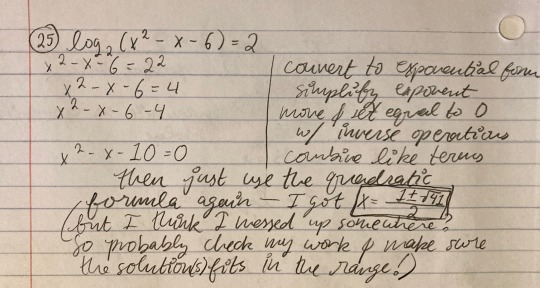 25 log₂(x² - x - 6) = 2
x² - x - 6 = 2² | convert to exponential form
x² - x - 6 = 4 | simplify exponent
x² - x - 6 - 4 | move & set equal to 0
w/ inverse operations
x² - x - 10 = 0 | combine like terms
then just use the quadratic
formula again — I got x = (1 ± √41)/2
(but I think I messed up somewhere?
So probably check my work & make sure
the solution(s) fits in the range!)